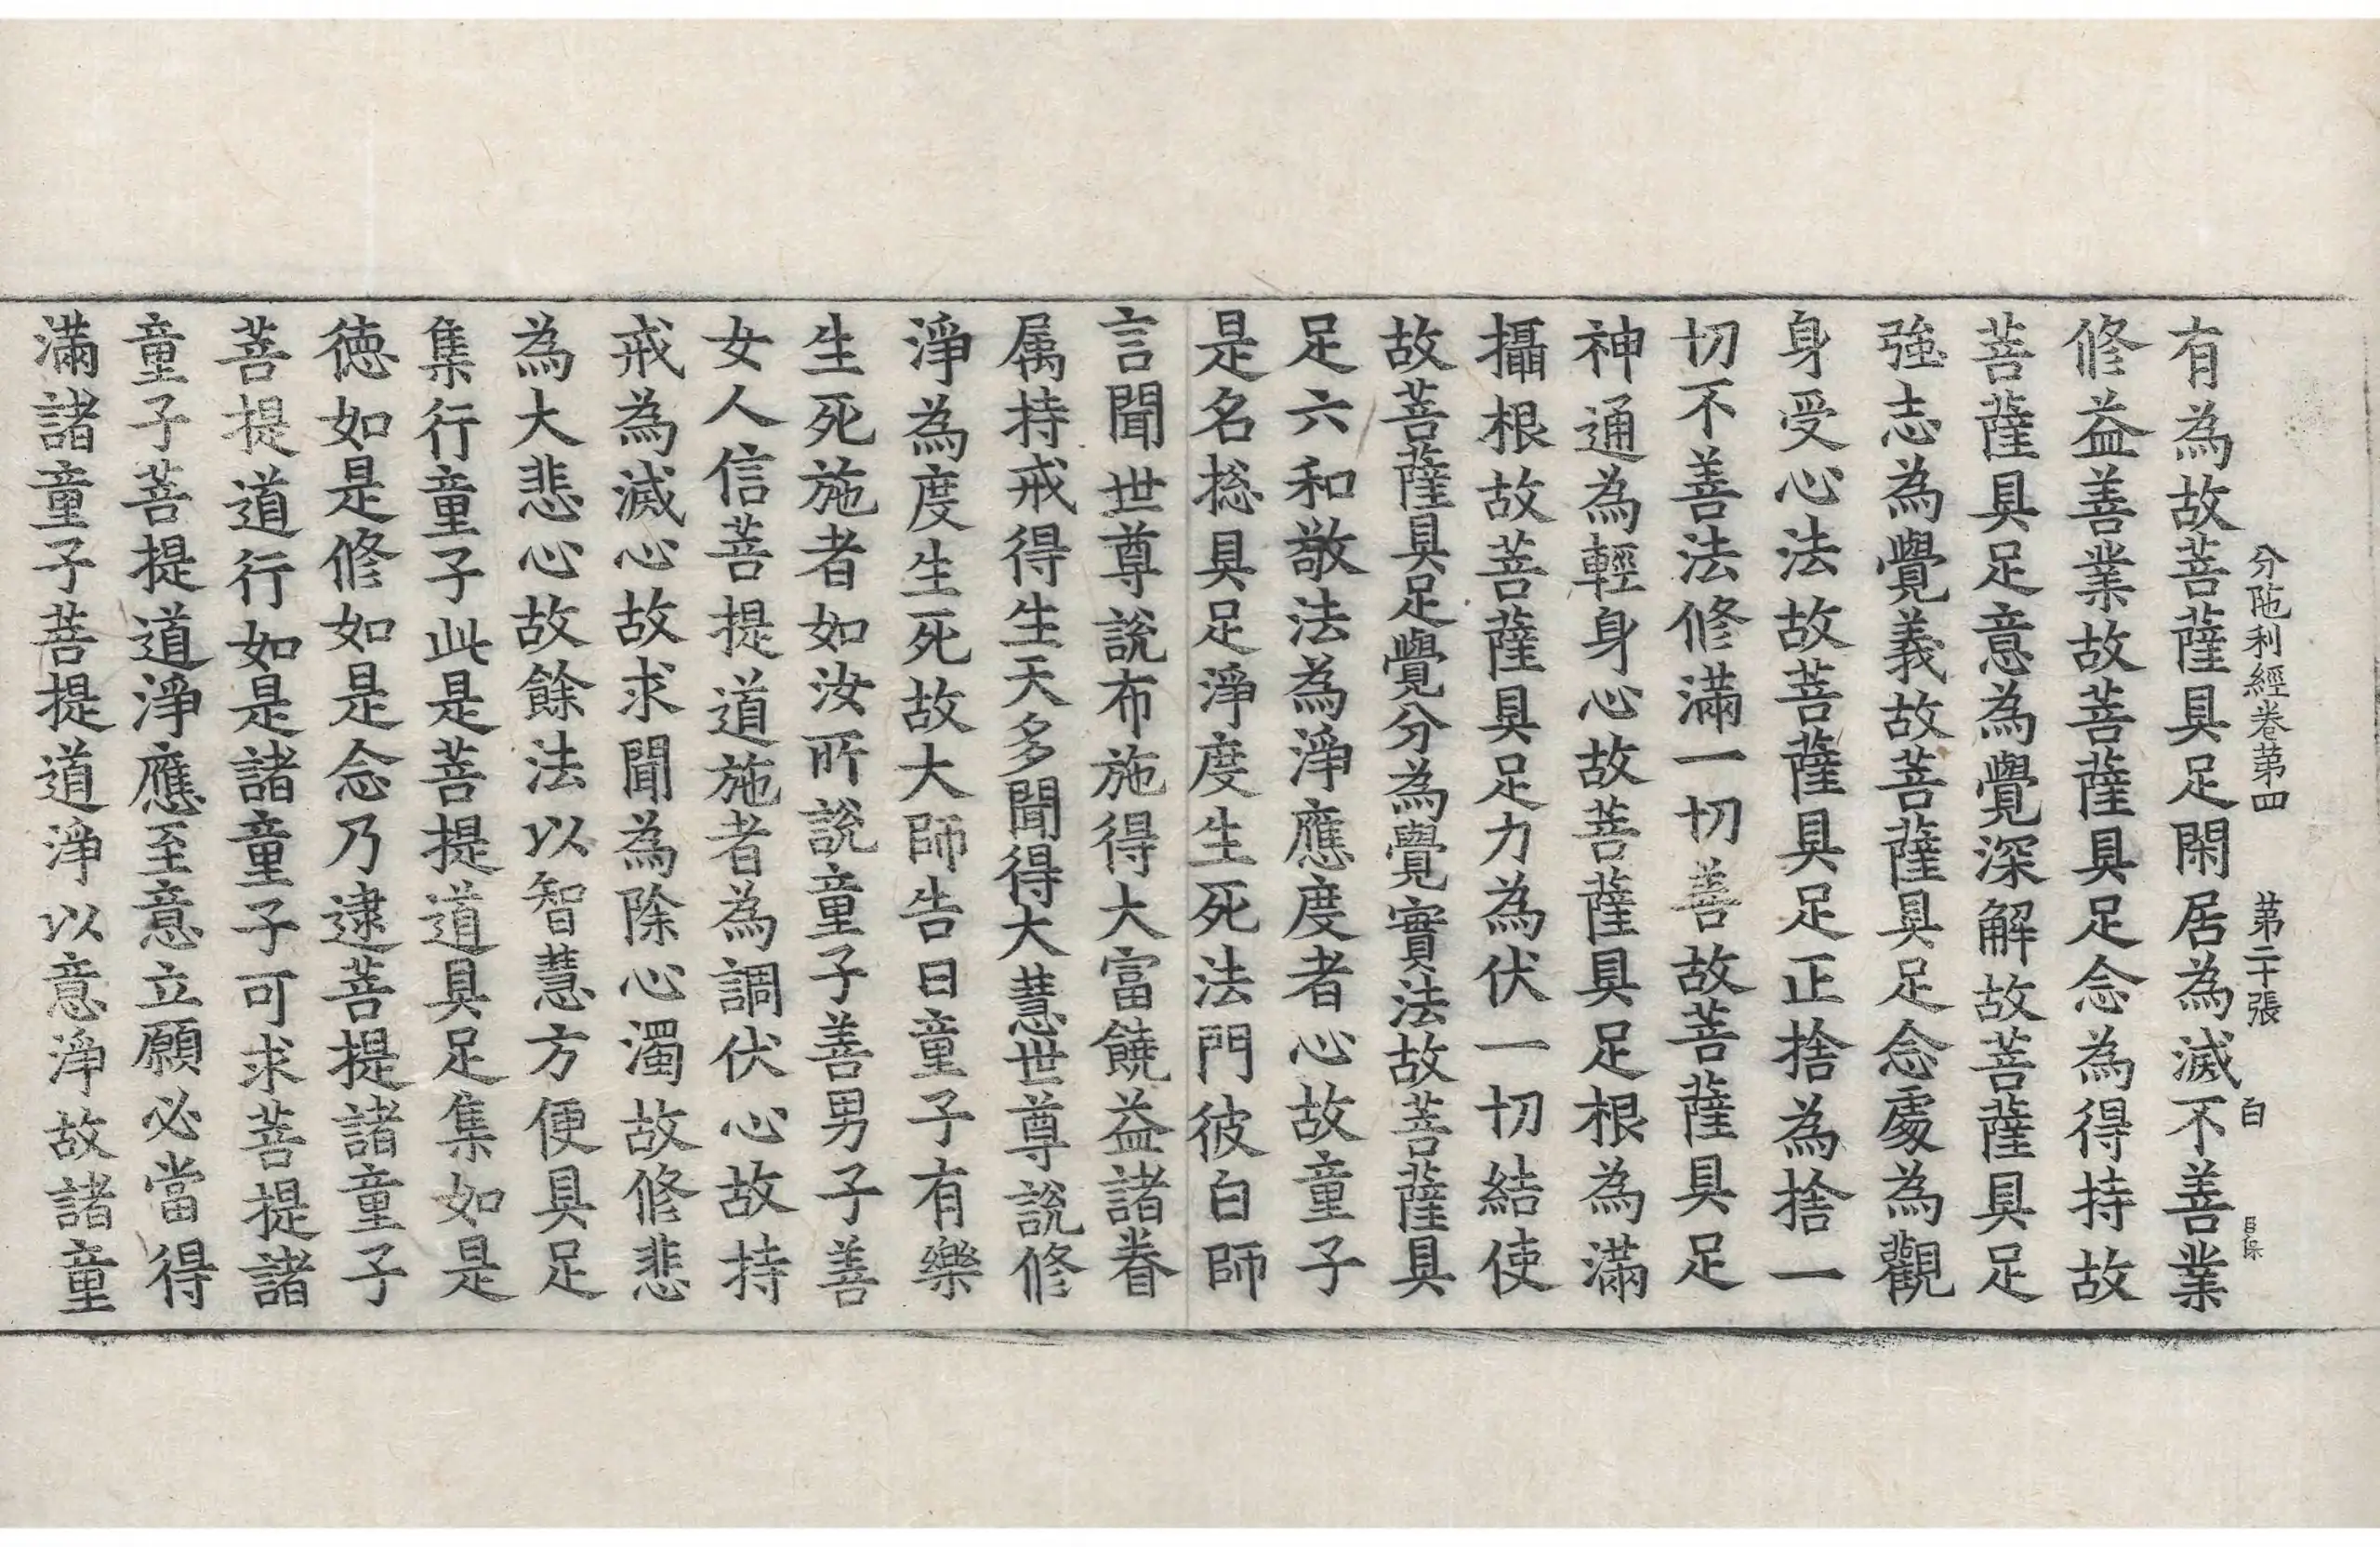 分陁利經卷第四　第二十張　白
有為故菩薩具足閑居為滅不善業
修益善業故菩薩具足念為得持故
菩薩具足意為覺深解故菩薩具足
強志為覺義故菩薩具足念處為觀
身受心法故菩薩具足正捨為捨一
切不善法修滿一切善故菩薩具足
神通為輕身心故菩薩具足根為滿
攝根故菩薩具足力為伏一切結使
故菩薩具足覺分為覺實法故菩薩具
足六和敬法為淨應度者心故童子
是名捴具足淨度生死法門彼白師
言聞世尊說布施得大富饒益諸眷
属持戒得生天多聞得大慧世尊說修
淨為度生死故大師告曰童子有樂
生死施者如汝所說童子善男子善
女人信菩提道施者為調伏心故持
戒為滅心故求聞為除心濁故修悲
為大悲心故餘法以智慧方便具足
集行童子此是菩提道具足集如是
徳如是修如是念乃逮菩提諸童子
菩提道行如是諸童子可求菩提諸
童子菩提道淨應至意立願必當得
滿諸童子菩提道淨以意淨故諸童